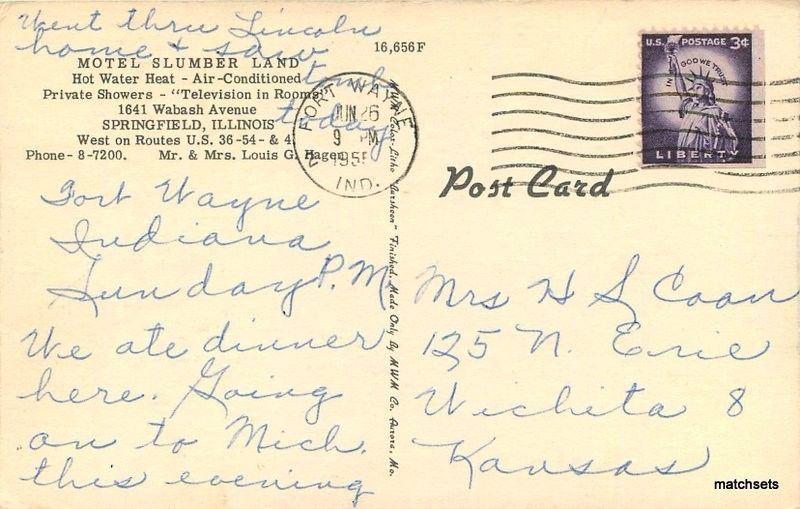 Went thru Lincoln
home + saw
tomb
today
16,656F
MOTEL SLUMBER LAND
Hot Water Heat - Air-Conditioned
Private Showers - "Television in Rooms"
1641 Wabash Avenue
SPRINGFIELD, ILLINOIS
West on Routes U.S. 36-54- & 4
Phone-8-7200. Mr. & Mrs. Louis G. Hagen
FORT WAYNE
JUN 26
9 PM
195
IND.
U.S. POSTAGE 3¢
IN GOD WE TRUST
LIBERTY
Post Card
Fort Wayne
Indiana
Sunday P.M
We ate dinner
here. Going
on to Mich.
this evening
MWM Color-Litho "Marsheen" Finished. Made Only By MWM Co. Aurora, Mo.
Mrs H S Coan
125 N. Erie
Wichita 8
Kansas
matchsets